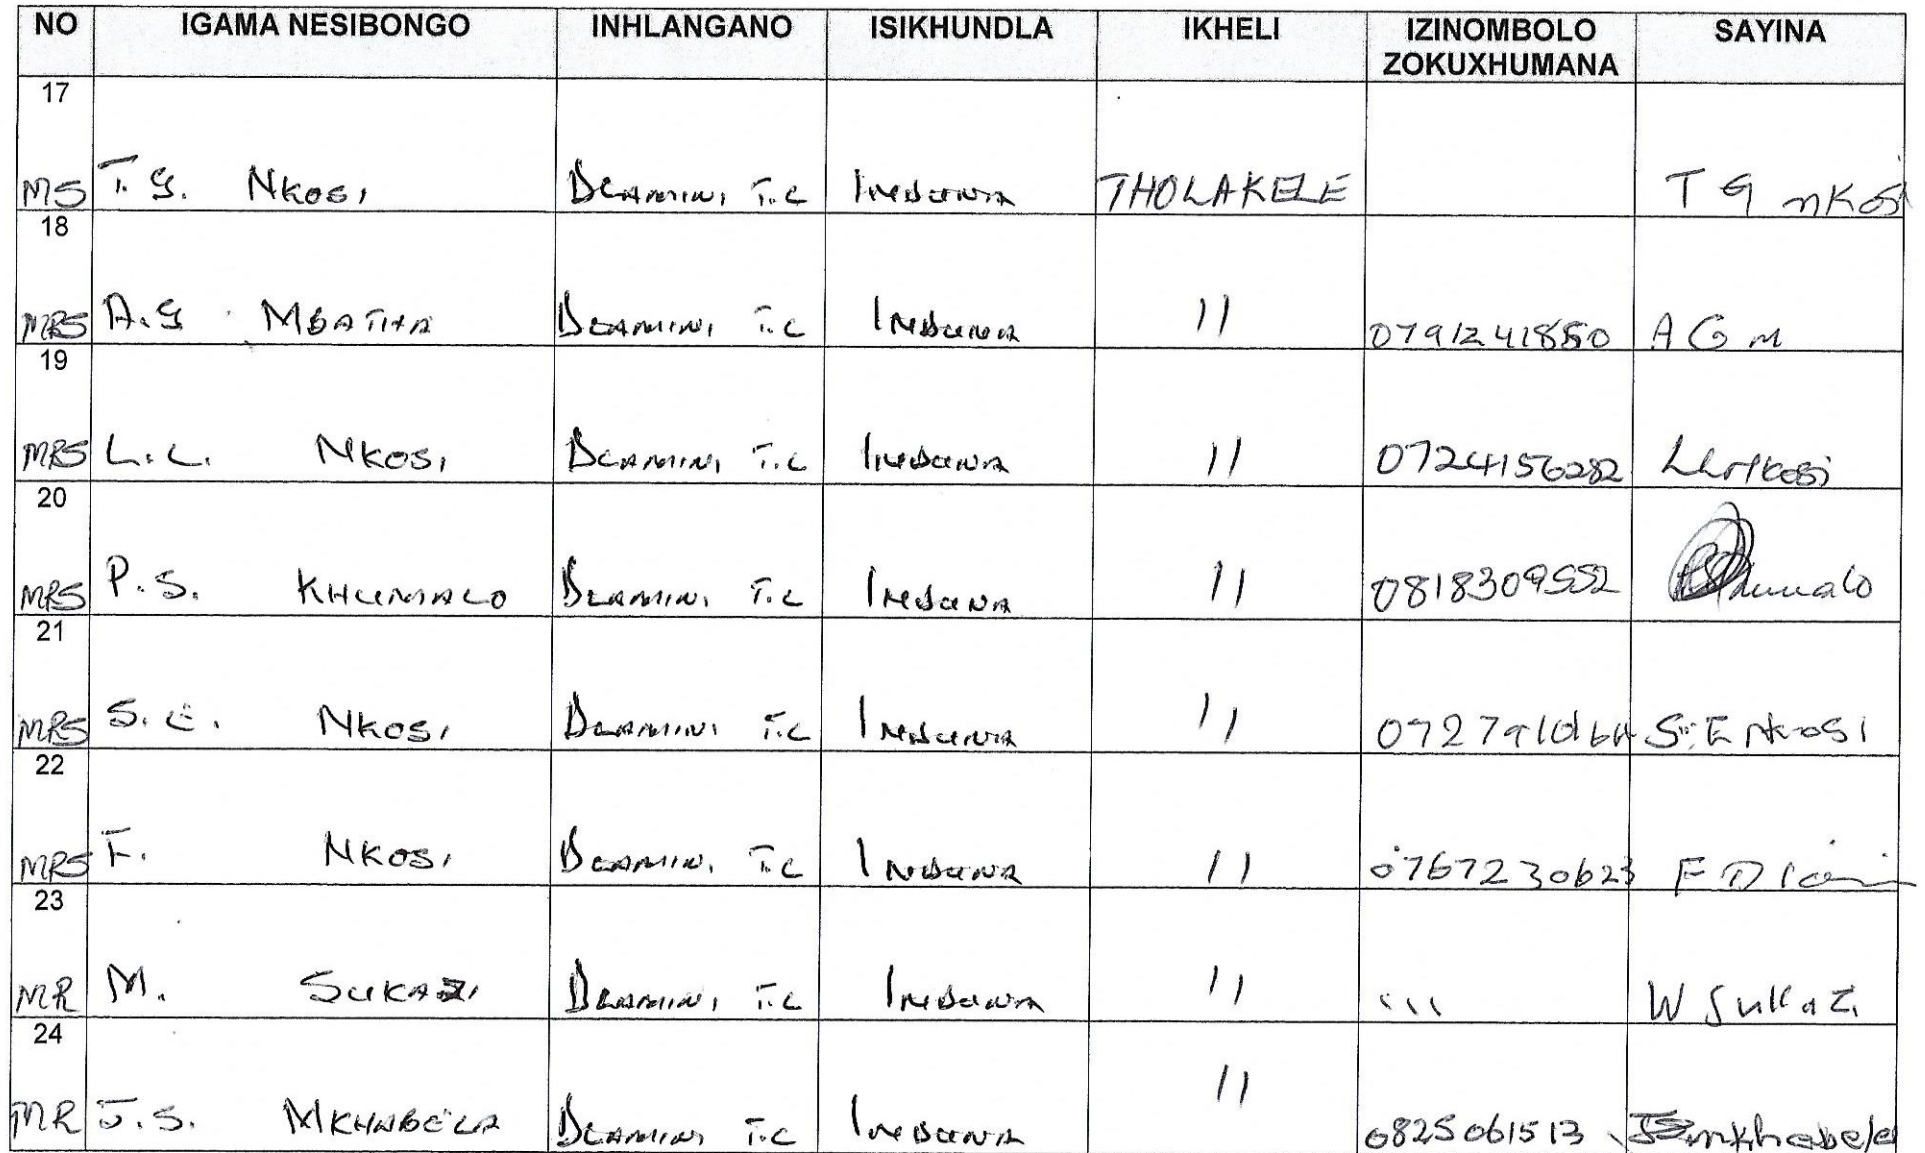 NO IGAMA NESIBONGO INHLANGANO ISIKHUNDLA IKHELI IZINOMBOLO ZOKUXHUMANA SAYINA
17
MS T.G. NKOSI DLAMINI T.C INDUNA THOLAKELE T G nKosi
18
MRS A.G MBATHA DLAMINI T.C INDUNA 11 0791241850 A G m
19
MRS L.L. NKOSI DLAMINI T.C INDUNA 11 0724156282 LLNkosi
20
MRS P.S. KHUMALO DLAMINI T.C INDUNA 11 0818309552
21
MRS S.E. NKOSI DLAMINI T.C INDUNA 11 S.E Nkosi
22
MRS F. NKOSI DLAMINI T.C INDUNA 11 0767230623
23
MR M. SUKAZI DLAMINI T.C INDUNA 11 \\\ W Sukazi
24
MR J.S. MKHABELA DLAMINI T.C INDUNA 11 0825061513 JSmkhabela